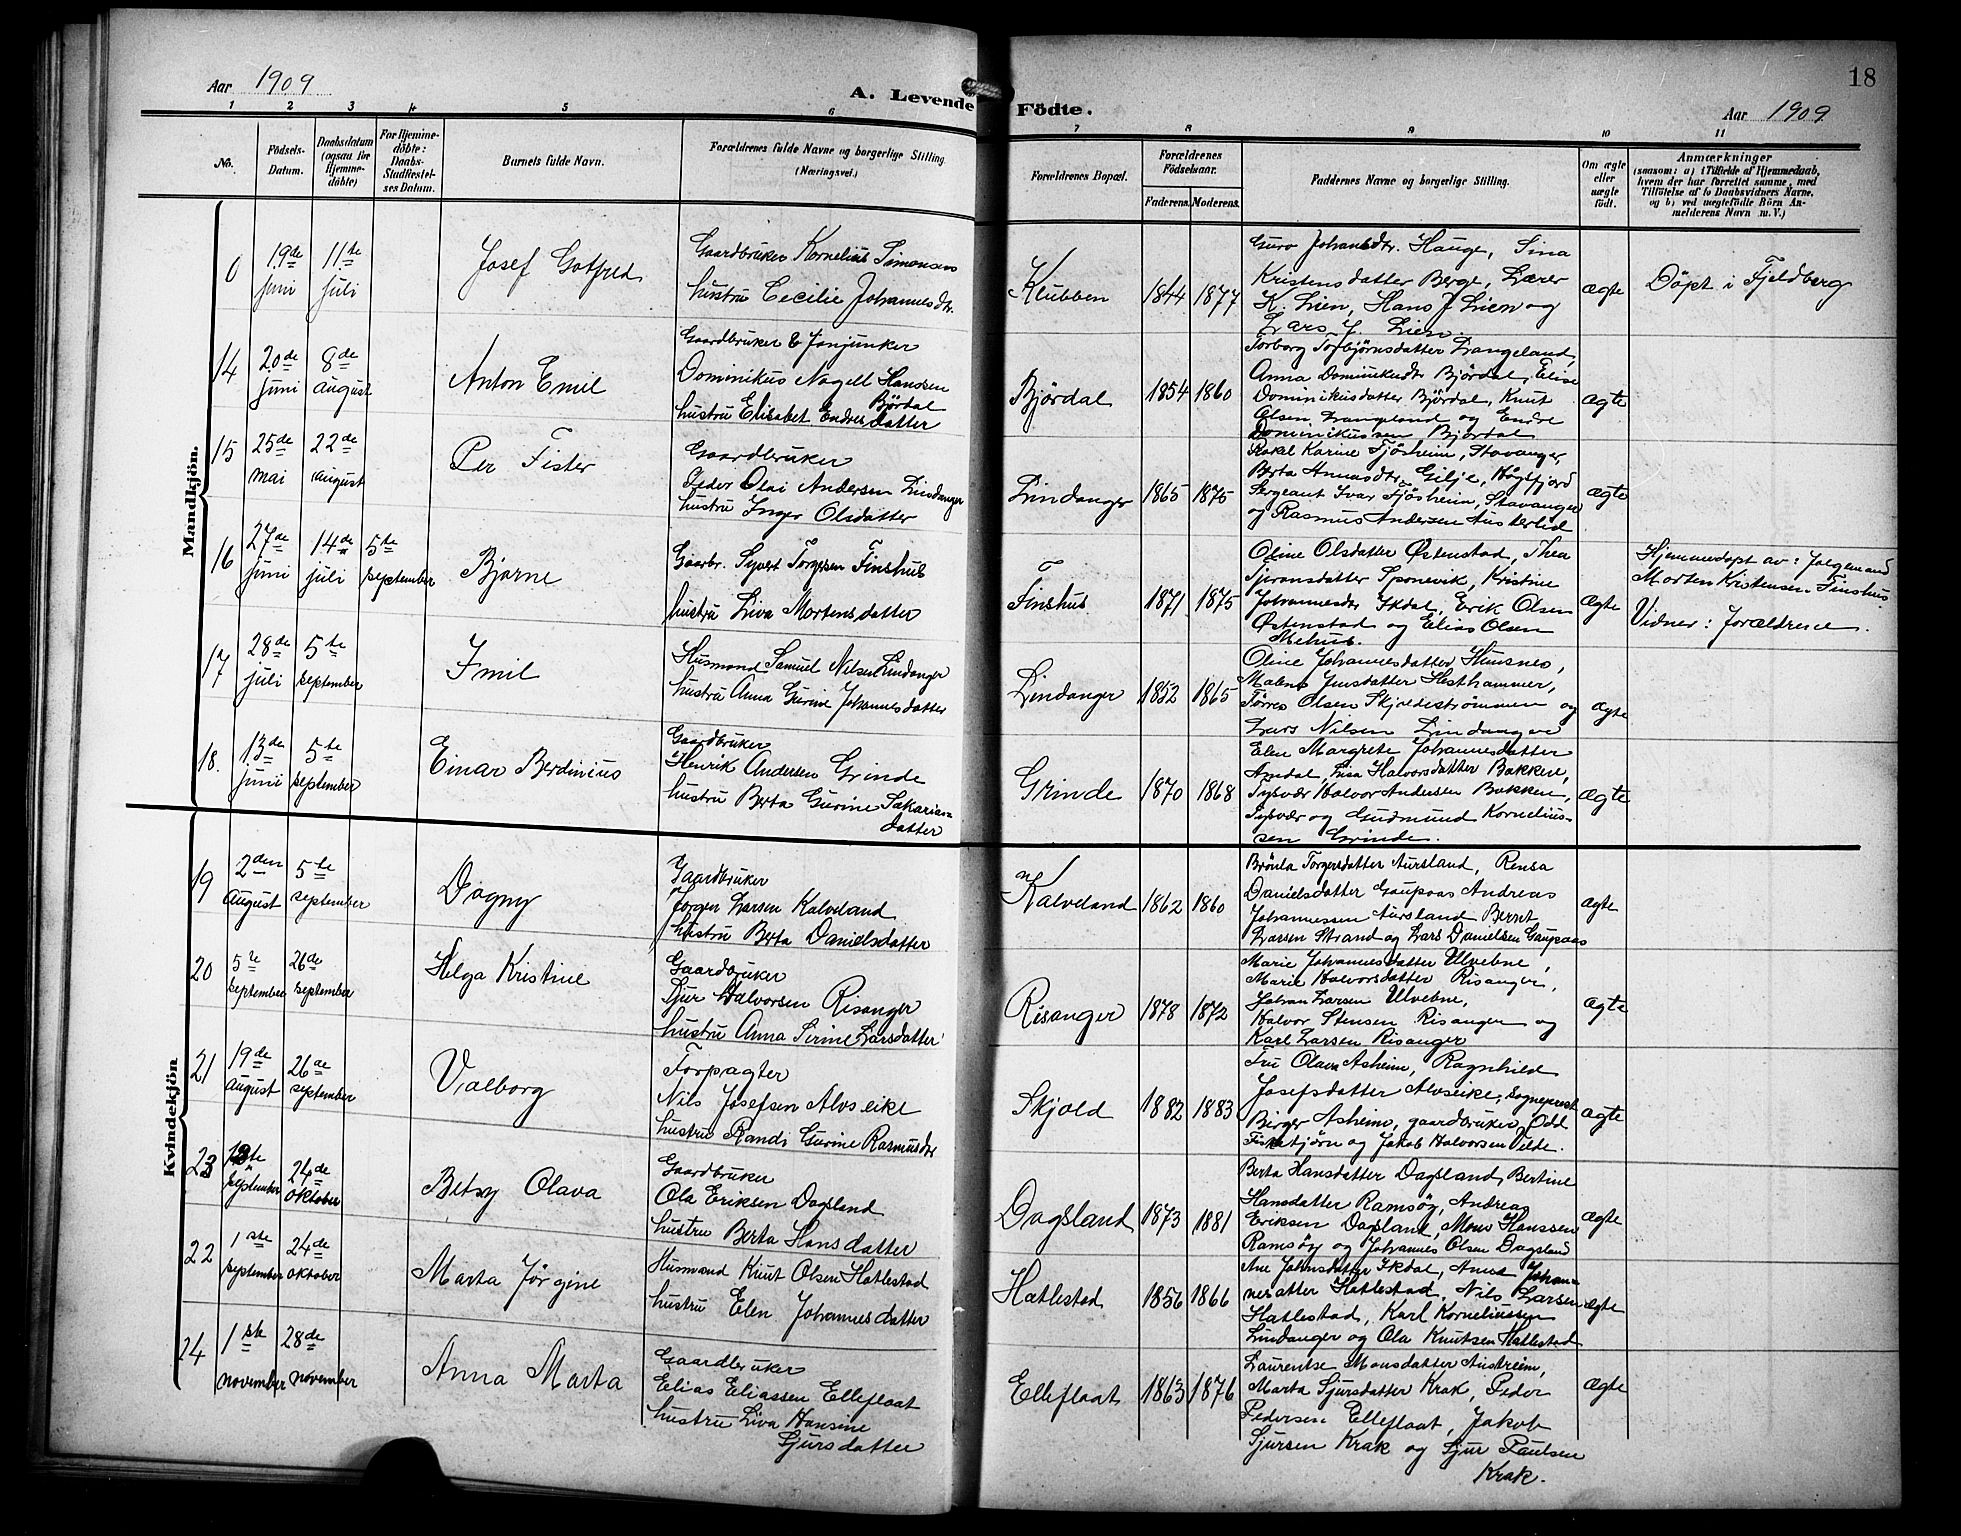 Aar 1909
A. Levende
1 2 3 4 5 6
No.
Födsels-
Datum.
Daabsdatum
(ogsaa for
Hjemme-
döbte)
For Hjemme-
döbte:
Daabs-
Stadfæstel-
ses Datum.
Barnets fulde Navn.
Forældrenes fulde Navne og borgerlige Stilling.
(Næringsvei.)
Mandkjön.
0 19de juni 11te juli
Josef Gotfred
Gaardbruker Kornelius Simonsen
hustru Cecilie Johannesdtr.
14 20de juni 8de august
Anton Emil
Gaardbruker & Jonjunker
Dominikus Nagell Hanssen
Björdal
hustru Elisabet Endresdatter
15 25de mai 22de august
Per Fister
Gaardbruker
Peder Olai Andersen Lindanger
hustru Inger Olsdatter
16 27de juni 14de juli 5te september
Bjarne
Gaarbr. Syvert Torgersen Finshus
hustru Liva Mortensdatter
17 28de juli 5te september
Emil
Husmand Samuel Nilsen Lindanger
hustru Anna Gurine Johannesdatter
18. 13de juni 5te september
Einar Berdinius
Gaardbruker
Henrik Andersen Grinde
hustru Berta Gurine Sakarias-
datter
Kvindekjön
19 2den august 5te september
Dagny
Gaardbruker
Torger Larsen Kalveland
hustru Berta Danielsdatter
20 5te september 26de september
Helga Kristine
Gaardbruker
Sjur Halvorsen Risanger
hustru Anna Sirine Larsdatter
21 19de august 26de september
Valborg
Forpagter
Nils Josefsen Alvseike
hustru Randi Gurine Rasmusdtr
23 september 24de oktober
Betsy Olava
Gaardbruker
Ola Eriksen Dagsland
hustru Berta Hansdatter
22 1ste september 24de oktober
Marta Jörgine
Husmand Knut Olsen Hatlestad
hustru Elen Johannesdatter
24 1ste november 28de november
Anna Marta
Gaardbruker
Elias Eliassen Elleflaat
hustru Liva Hansine
Sjursdatter
18
Födte.
Aar 1909
7 8 9 10 11
Forældrenes Bopæl.
Forældrenes
Födselsaar.
Faderens. Moderens.
Faddernes Navne og borgerlige Stilling.
Om ægte
eller
uægte
födt.
Anmærkninger
(saasom: a) i Tilfælde af Hjemmedaab,
hvem der har forrettet samme, med
Tilföielse af to Daabsvidners Navne,
og b) ved uægtefödte Börn An-
melderens Navn m. V.)
Klubben 1844 1877
Guro Johansdtr. Hauge, Sina
Kristensdatter Berge, Lærer
K. Lien, Hans J Lien og
Lars J. Lien.
ægte
Döpt i Fjeldberg
Björdal 1854 1860
Torborg Torbjörnsdatter Langeland,
Anna Dominikusdtr Björdal, Elise
Dominikusdatter Björdal, Knut
Olsen Langeland og Endre
Dominikussen Björdal
ægte
Lindanger 1865 1875
Rakel Karine Tjösheim, Stavanger,
Berta Annasdtr Gilje, Högsfjord
Sergeant Ivar Tjösheim, Stavanger
og Rasmus Andersen Austerlid
ægte
Finshus. 1871 1875
Oline Olsdatter Østenstad, Thea
Sjovansdatter Sponevik, Kristine
Johannesdtr Ikdal, Erik Olsen
Østenstad og Elias Olsen
Mehus.
ægte
Hjemmedøpt av: Jalgemand
Morten Kristensen Finshus
Vidner: forældrene.
Lindanger 1852 1865
Oline Johannesdatter Hunsnes,
Malene Jensdatter Hesthammer,
Törres Olsen Skjoldestrømmen og
Lars Nilsen Lindanger
ægte
Grinde 1870 1868
Elen Margrete Johannesdatter
Amdal, Lisa Halvorsdatter Bakken,
Tysvær Halvor Andersen Bakken,
Tysvær og Gudmund Kornelius-
sen Grinde.
ægte
Kalveland 1862 1860
Brönla Torgersdatter Aursland, Rensa
Danielsdatter Gaupaas Andreas
Johannessen Aursland Bernt
Larsen Strand og Lars Danielsen Gaupaas
ægte
Risanger 1878 1872
Marie Johannesdatter Ulvebne,
Marie Halvorsdatter Risanger,
Johan Larsen Ulvebne,
Halvor Stensen Risanger og
Karl Larsen Risanger
ægte
Skjold 1882 1883
Fru Olava Asheim, Ragnhild
Josefsdatter Alvseike, Sogneprest
Birger Asheim, gaardbruker Odd
Fisketjörn og Jakob Halvorsen Velde.
ægte
Dagsland 1873 1881
Berta Hansdatter Dagsland, Bertine
Hansdatter Ramsöy, Andreas
Eriksen Dagsland, Mons Hanssen
Ramsöy og Johannes Olsen Dagsland
ægte
Hatlestad 1856 1866
Ane Johnsdatter Ikdal, Anna Johan-
nesdatter Hatlestad, Nils Larsen
Hatlestad, Karl Korneliussen
Lindanger og Ola Knutsen Hatlestad
ægte
Elleflaat 1863 1876
Laurentse Monsdatter Austreim,
Marta Sjursdatter Krak, Peder
Pedersen Elleflaat, Jakob
Sjursen Krak og Sjur Paulsen
Krak.
ægte